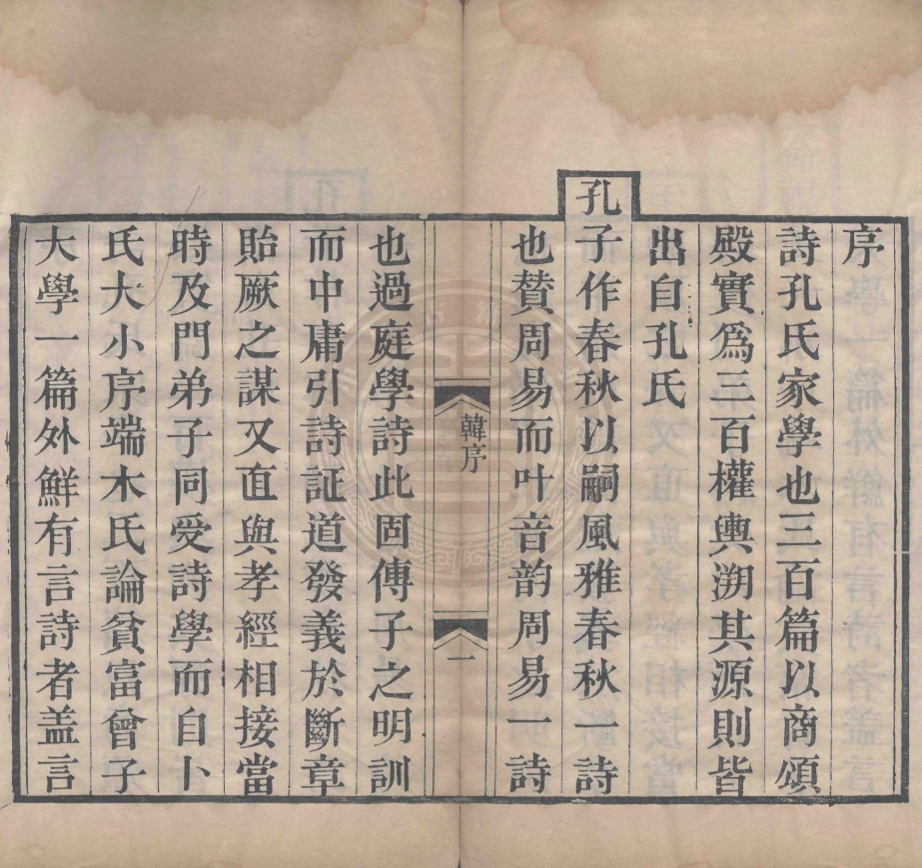 序
詩孔氏家學也三百篇以商頌
殿實爲三百權輿溯其源則皆
出自孔氏
孔子作春秋以嗣風雅春秋一詩
也贊周易而叶音韵周易一詩
韓序
一
也過庭學詩此固傳子之明訓
而中庸引詩証道發義於斷章
貽厥之謀又直與孝經相接當
時及門弟子同受詩學而自卜
氏大小序端木氏論貧富曾子
大學一篇外鮮有言詩者盖言